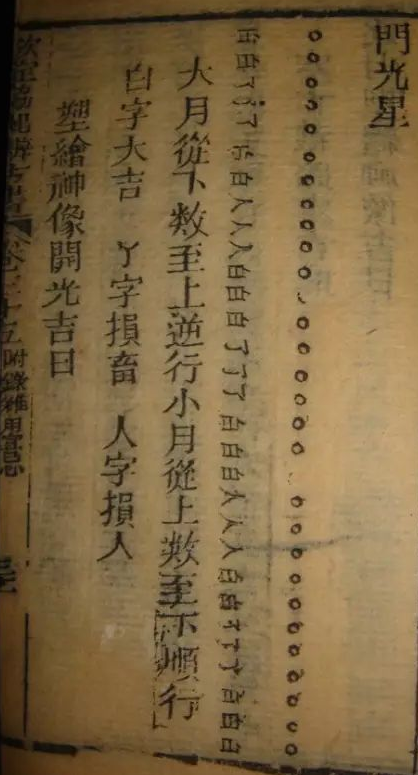 門光星
白白丫丫丫白白人人人白白白丫丫丫白白白人人人白白丫丫丫白白白
大月從下數至上逆行小月從上數至下順行
白字大吉 丫字損畜 人字損人
塑繪神像開光吉日
欽定協紀辨方書 卷三十五 附錄 雜用宜忌